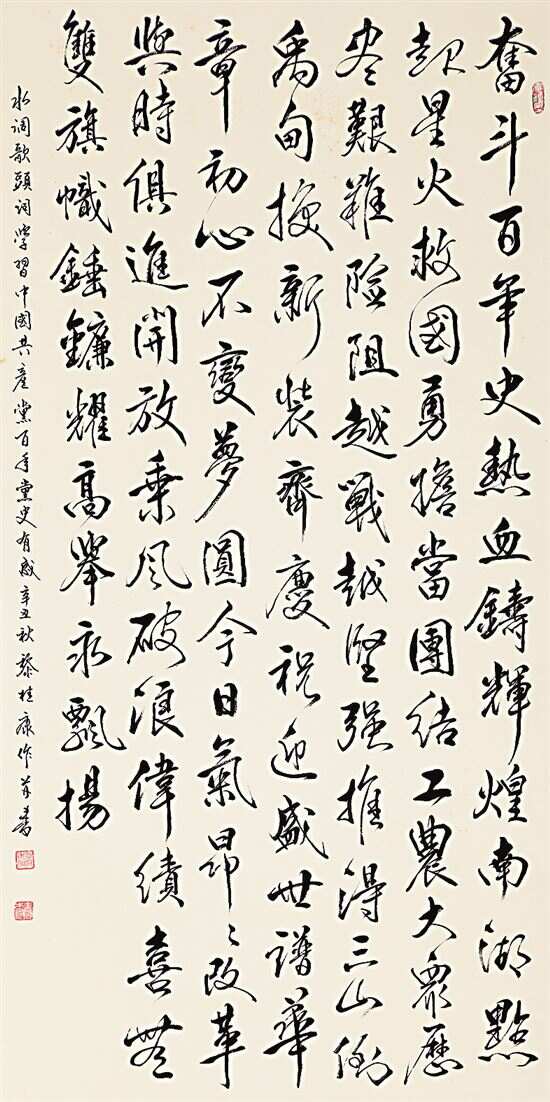 奮斗百年史熱血鑄輝煌南湖點
起星火救國勇擔當團结工農大眾歷
尽艱難險阻越戰越堅强推得三山倒
禹甸換新裝齊慶祝迎盛世譜華
章初心不變夢圓今日氣昂々改革
與時俱進開放乘风破浪偉績喜無
雙旗幟錘鐮耀高舉永飄揚
水调歌頭词学習中國共產黨百年党史有感辛丑秋黎桂康作并書